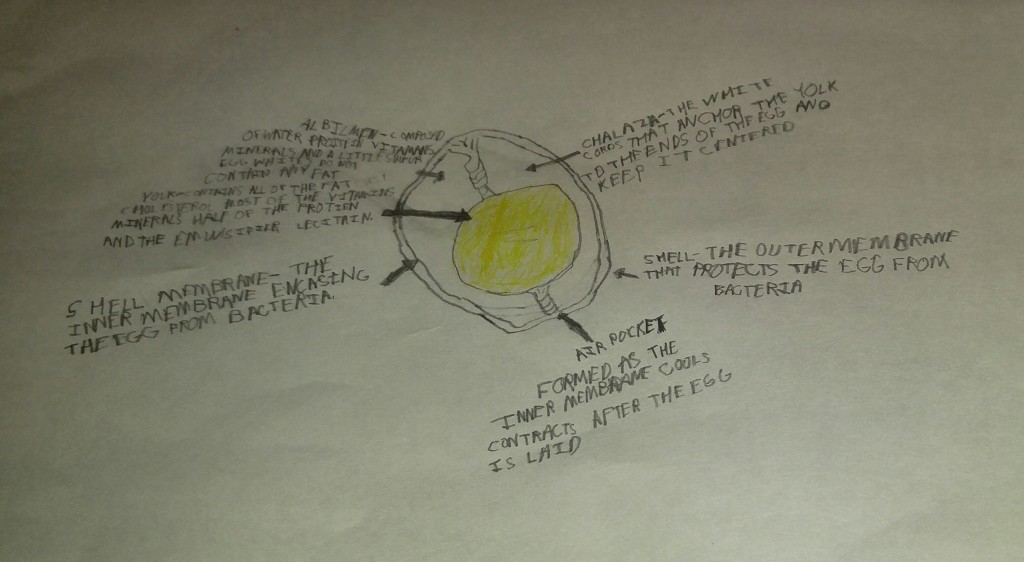 ALBUMEN - COMPOSED
OF WATER PROTEIN VITAMINS
MINERALS AND A LITTLE SUGAR
EGG WHITES DO NOT
CONTAIN ANY FAT
YOLK - CONTAINS ALL OF THE FAT
CHOLESTEROL MOST OF THE VITAMINS
MINERALS HALF OF THE PROTIEN
AND THE EMULSIFIER LECITAIN.
SHELL MEMBRANE - THE
INNER MEMBRANE ENCASING
THE EGG FROM BACTERIA.
CHALAZIA - THE WHITE
CORDS THAT ANCHOR THE YOLK
TO THE ENDS OF THE EGG AND
KEEP IT CENTERED
SHELL - THE OUTER MEMBRANE
THAT PROTECTS THE EGG FROM
BACTERIA
AIR POCKET
FORMED AS THE
INNER MEMBRANE COOLS
CONTRACTS AFTER THE EGG
IS LAID